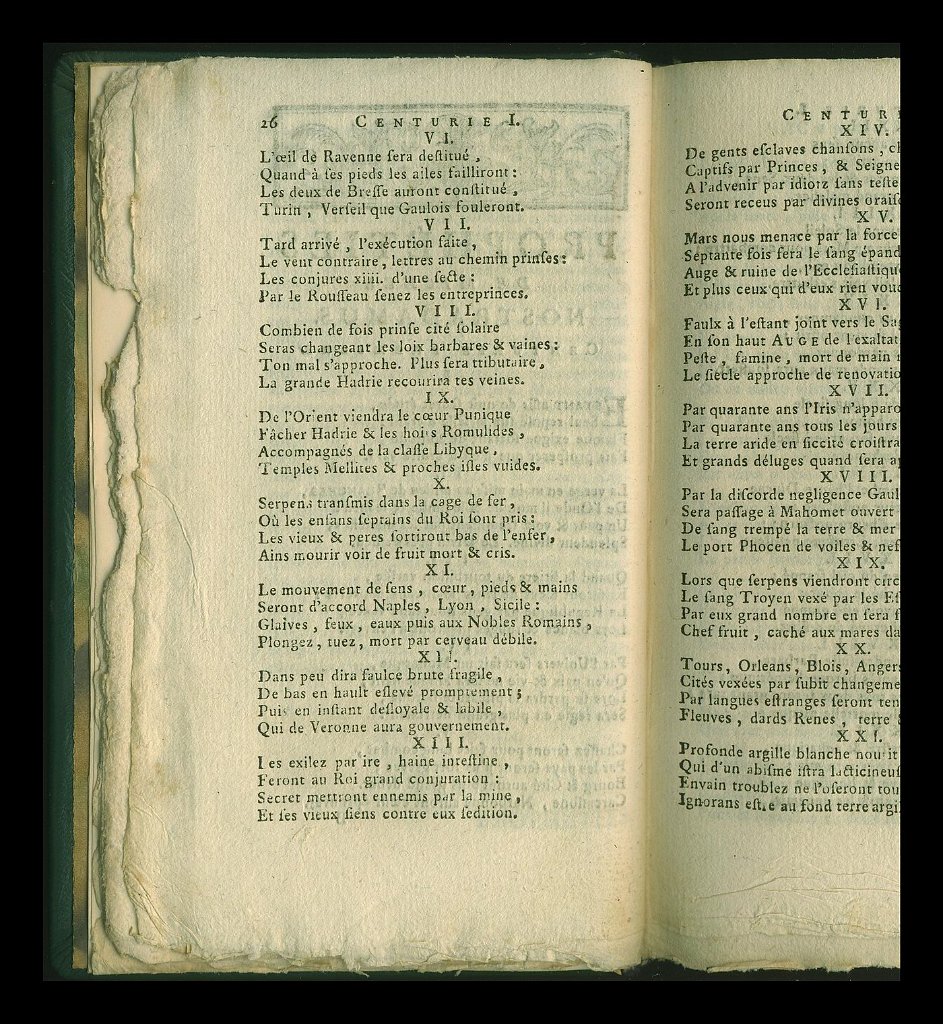 26 CENTURIE I.
VI.
L'œil de Ravenne ſera deſtitué ,
Quand à ſes pieds les ailes failliront :
Les deux de Breſſe auront conſtitué ,
Turin , Verſeil que Gaulois fouleront.
VII.
Tard arrivé , l'exécution faite ,
Le vent contraire , lettres au chemin prinſes :
Les conjures xiiii. d'une ſecte :
Par le Rouſſeau ſenez les entreprinces.
VIII.
Combien de fois prinſe cité ſolaire
Seras changeant les loix barbares & vaines :
Ton mal s'approche. Plus ſera ttibutaire ,
La grande Hadrie recourira tes veines.
IX.
De l'Orient viendra le cœur Punique
Fâcher Hadrie & les hoirs Romulides ,
Accompagnés de la claſſe Libyque ,
Temples Mellites & proches iſles vuides.
X.
Serpens tranſmis dans la cage de fer ,
Où les enfans ſeptains du Roi ſont pris :
Les vieux & peres ſortiront bas de l'enfer ,
Ains mourir voir de fruit mort & cris.
XI.
Le mouvement de ſens , cœur , pieds & mains
Seront d'accord Naples , Lyon , Sicile :
Glaives , feux , eaux puis aux Nobles Romains ,
Plongez , tuez , mort par cerveau débile.
XII.
Dans peu dira faulce brute fragile ,
De bas en hault eſlevé promptement ;
Puis en inſtant deſloyale & labile ,
Qui de Veronne aura gouvernement.
XIII.
Les exilez par ire , haine inteſtine ,
Feront au Roi grand conjuration :
Secret mettront ennemis par la mine ,
Et ſes vieux ſiens contre eux ſedition.
CENTUR
XIV.
De gents eſclaves chanſons , ch
Captifs par Princes , & Seigne
A l'advenir par idiotz ſans teſte
Seront receus par divines oraiſo
XV.
Mars nous menace par la force
Septante fois fera le ſang épand
Auge & ruine de l'Eccleſiaſtiqu
Et plus ceux qui d'eux rien voud
XVI.
Faulx à l'eſtant joint vers le Sag
En ſon haut AUGE de l'exaltat
Peſte , famine , mort de main
Le ſiecle approche de renovatio
XVII.
Par quarante ans l'Iris n'apparo
Par quarante ans tous les jours
La terre aride en ſiccité croiſtra
Et grands déluges quand ſera ap
XVIII.
Par la diſcorde negligence Gaul
Sera paſſage à Mahomet ouvert
De ſang trempé la terre & mer
Le port Phocen de voiles & nef
XIX.
Lors que ſerpens viendront circ
Le ſang Troyen vexé par les Eſ
Par eux grand nombre en ſera f
Chef fruit , caché aux mares da
XX.
Tours , Orleans , Blois , Angers
Cités vexées par ſubit changeme
Par langues eſtranges ſeront ten
Fleuves , dards Renes , terre
XXI.
Profonde argille blanche nourit
Qui d'un abiſme iſtra lacticineuſ
Envain troublez ne l'oſeront tou
Ignorans eſtre au fond terre argil